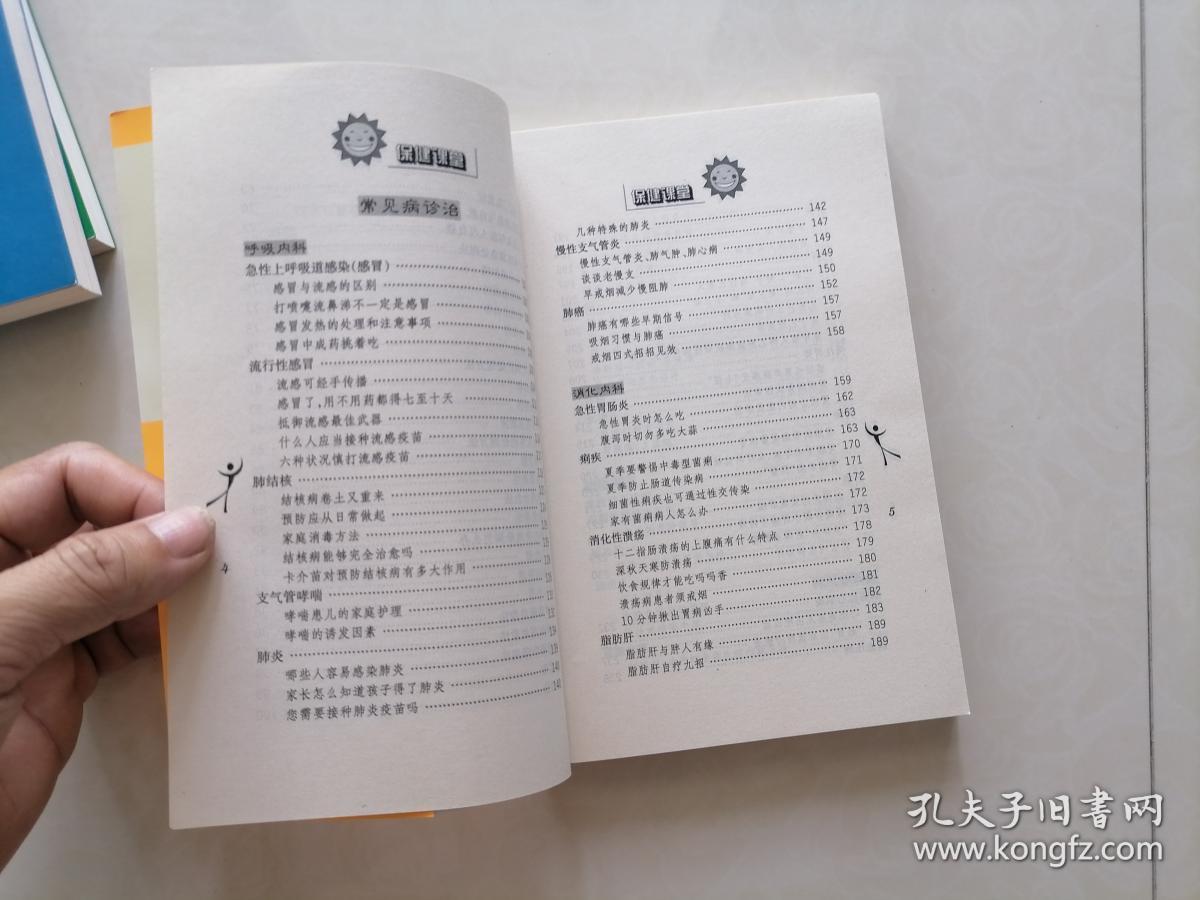 保健课堂
常见病诊治
呼吸内科
急性上呼吸道感染(感冒)
感冒与流感的区别
打喷嚏流鼻涕不一定是感冒
感冒发热的处理和注意事项
感冒中成药挑着吃
流行性感冒
流感可经手传播
感冒了,用不用药都得七至十天
抵御流感最佳武器
什么人应当接种流感疫苗
六种状况慎打流感疫苗
肺结核
结核病卷土又重来
预防应从日常做起
家庭消毒方法
结核病能够完全治愈吗
卡介苗对预防结核病有多大作用
支气管哮喘
哮喘患儿的家庭护理
哮喘的诱发因素
肺炎
哪些人容易感染肺炎
家长怎么知道孩子得了肺炎
您需要接种肺炎疫苗吗
4
保健课堂
几种特殊的肺炎 142
慢性支气管炎 147
慢性支气管炎、肺气肿、肺心病 149
谈谈老慢支 149
早戒烟减少慢阻肺 150
肺癌 152
肺癌有哪些早期信号 157
吸烟习惯与肺癌 157
戒烟四式招招见效 158
消化内科
急性胃肠炎 159
急性胃炎时怎么吃 162
腹泻时切勿多吃大蒜 163
痢疾 163
夏季要警惕中毒型菌痢 170
夏季防止肠道传染病 171
细菌性痢疾也可通过性交传染 172
家有菌痢病人怎么办 172
消化性溃疡 173
十二指肠溃疡的上腹痛有什么特点 178
深秋天寒防溃疡 179
饮食规律才能吃吗吗香 180
溃疡病患者须戒烟 181
10分钟揪出胃病凶手 182
脂肪肝 183
脂肪肝与胖人有缘 189
脂肪肝自疗九招 189
5
孔夫子旧书网
www.kongfz.com